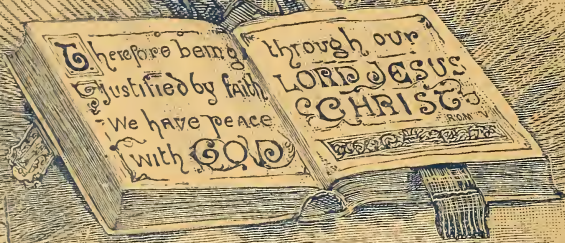 Therefore being
Justified by faith
We have peace
with GOD
through our
LORD JESUS
CHRIST
ROM V